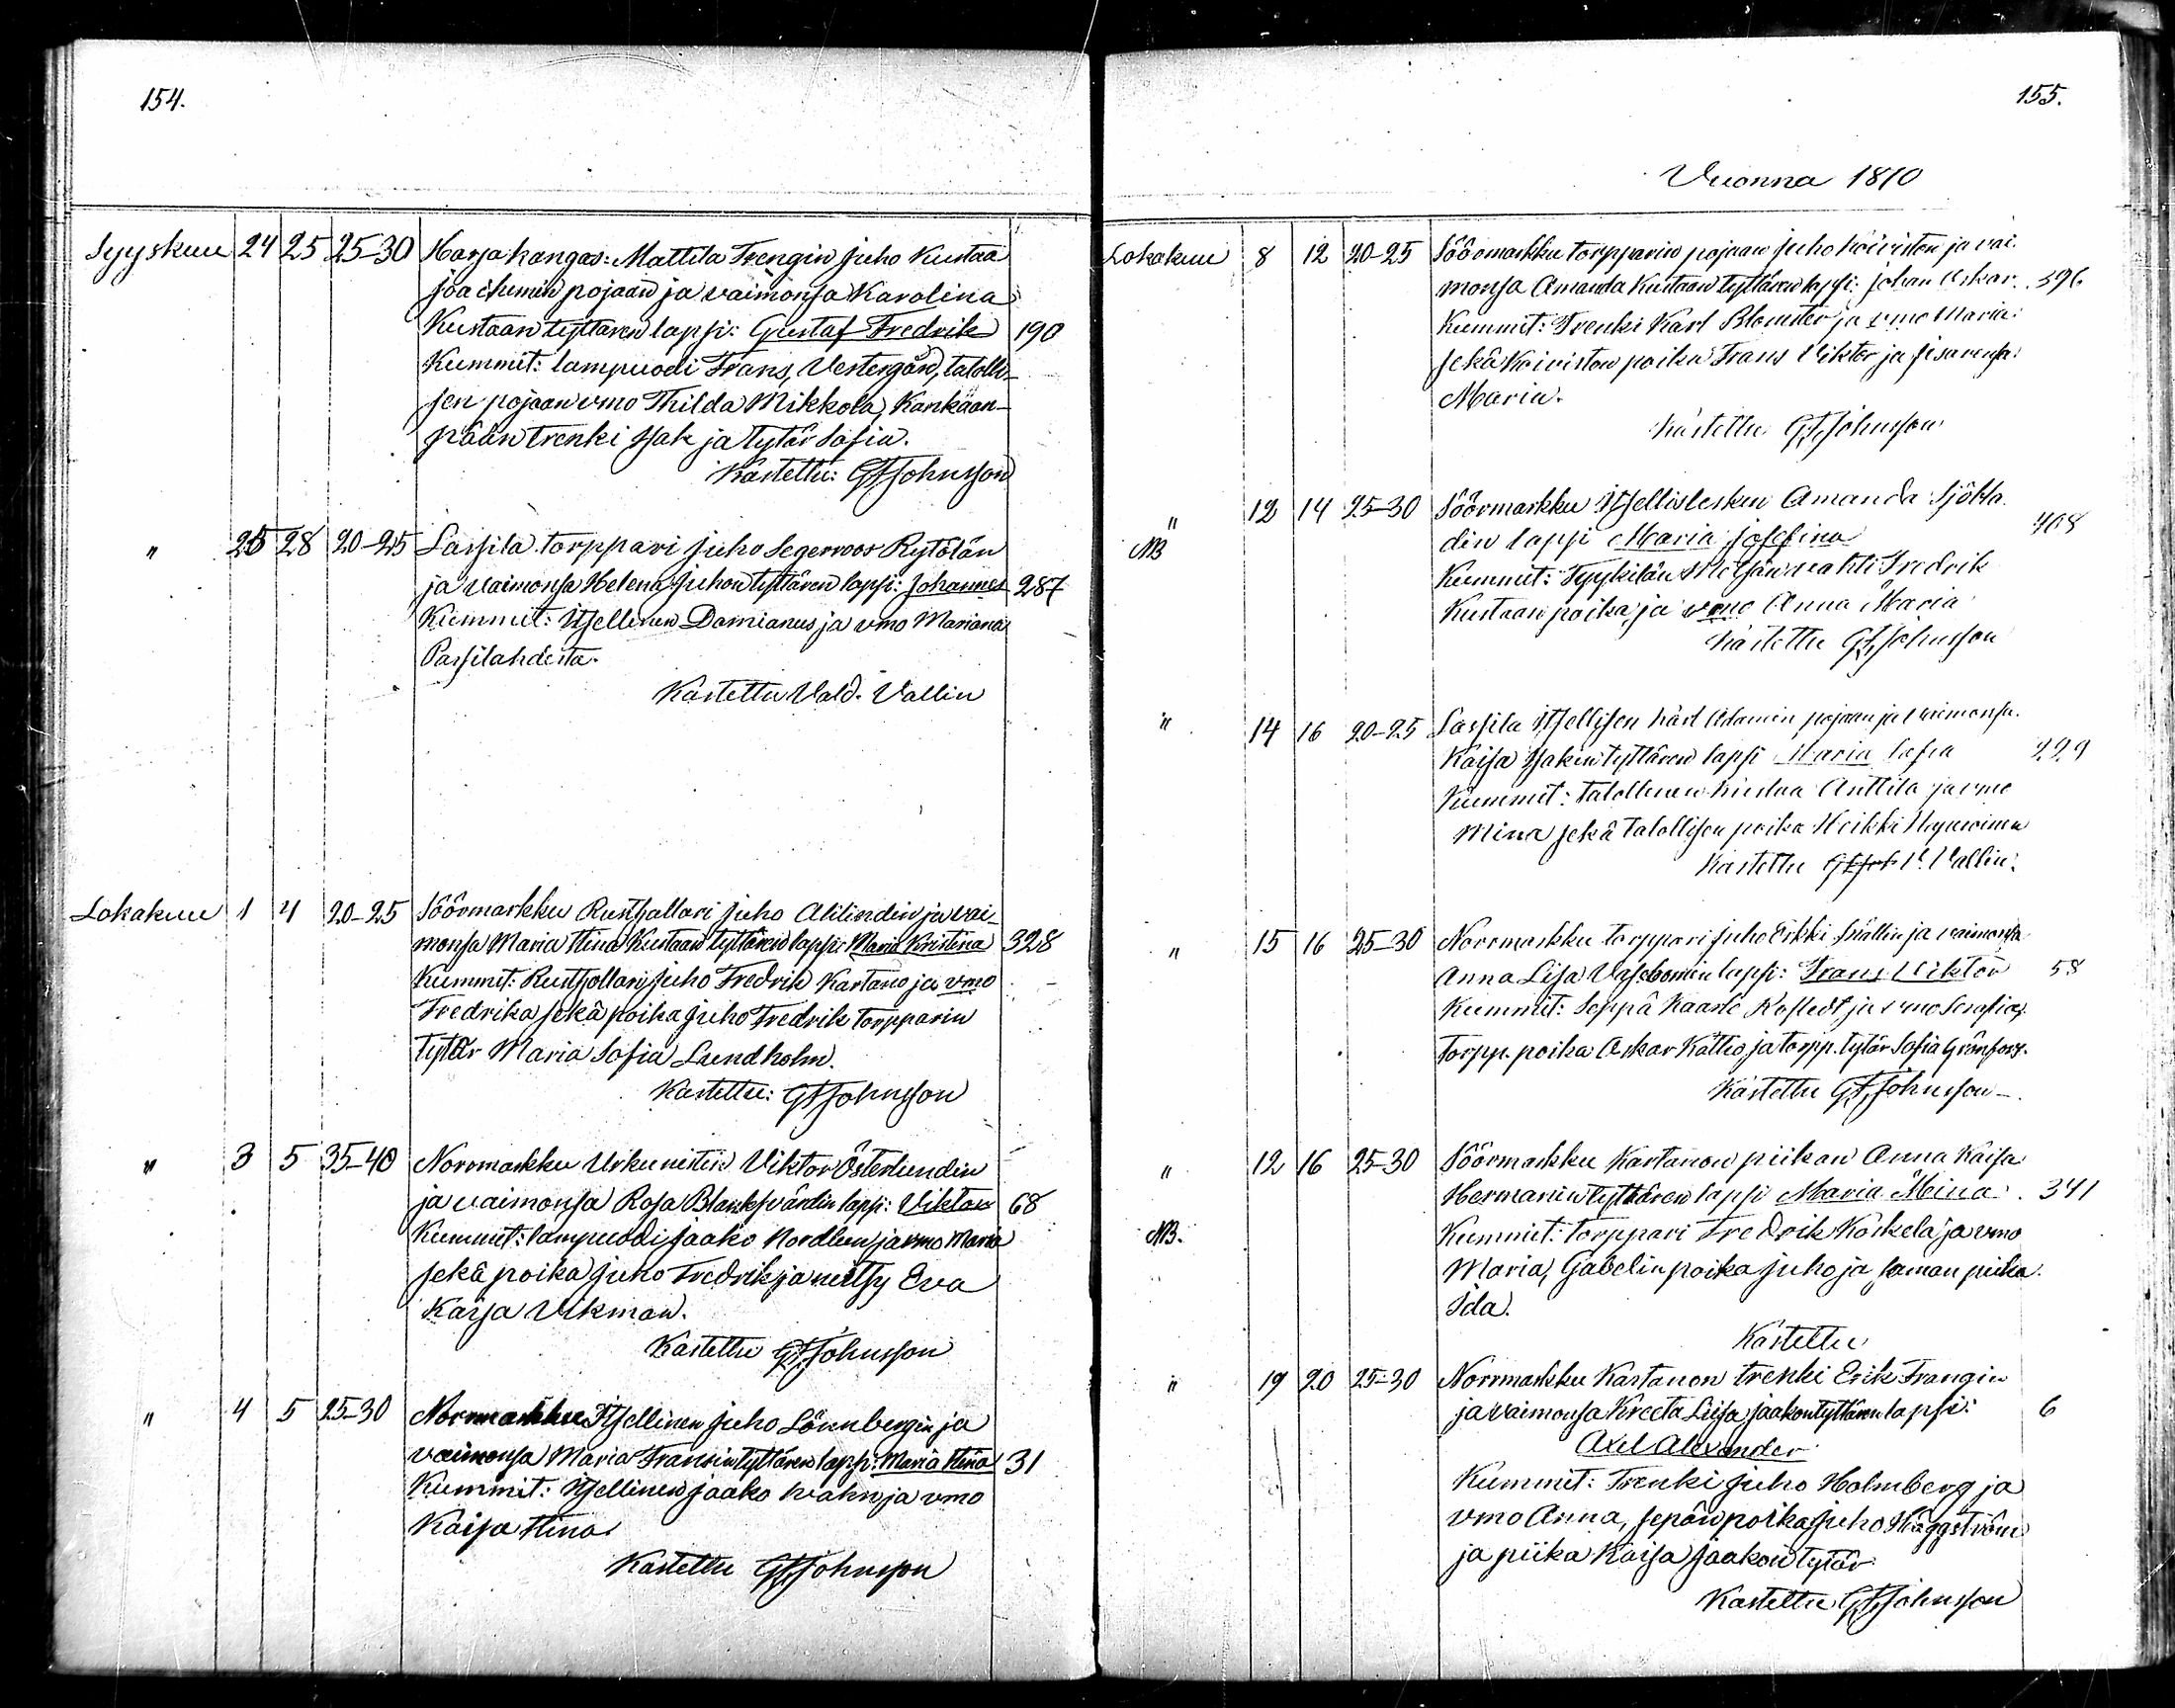 154.
Syyskuu 24 25 25-30 Harjakangas: Mattila Trengin Juho Kustaa
Joachimin pojaan ja vaimonsa Karolina
Kustaan tyttären lapsi: Gustaf Fredrik 190
Kummit: lampuodi Frans, Vestergård, talolli-
sen pojaan vmo Thilda Mikkola, Kankään-
pään trenki Isak ja tytär Sofia.
Kastettu: GFJohnsson
" 25 28 20-25 Lassila torppari Juho Segervoos Rytölän
ja vaimonsa Helena Juhon tyttären lapsi: Johannes 287
Kummit: Itsellinen Damianus ja vmo Mariana
Passilahdesta.
Kastettu Vald. Vallin
Lokakuu 1 4 20-25 Söörmarkku Rusthollari Juho Alilindin ja vai-
monsa Maria Stina Kustaan tyttären lapsi: Maria Kristina 328
Kummit: Rusthollari Juho Fredrik Kartano ja vmo
Fredrika sekä poika Juho Fredrik torpparin
tytär Maria Sofia Lundholm.
Kastettu: GFJohnsson
" 3 5 35-40 Norrmarkku Urkunistin Viktor Österlundin
ja vaimonsa Rosa Blanksvärdin lapsi: Viktor 68
Kummit: lampuodi Jaako Nordlun ja vmo Maria
sekä poika Juho Fredrik ja neitsy Eva
Kaisa Vikman.
Kastettu GFJohnsson
" 4 5 25-30 Norrmarkku Itsellinen Juho Lönnbergin ja
vaimonsa Maria Fransin tyttären lapsi: Maria Stina 31
Kummit: Itsellinen Jaako Kvahn ja vmo
Kaisa Stina
Kastettu GFJohnsson
155.
Vuonna 1870
Lokakuu 8 12 20-25 Söörmarkku torpparin pojaan Juho Koiviston ja vai-
monsa Amanda Kustaan tyttären lapsi: Johan Oskar. 396
Kummit: Trenki Karl Blomster ja vmo Maria
sekä Koiviston poika Frans Viktor ja sisarensa
Maria.
Kastettu GFJohnsson
" 12 14 25-30 Söörmarkku Itsellislesken Amanda Sjöbla-
NB din lapsi Maria Josefina 408
Kummit: Tyykilän Metsänvahti Fredrik
Kustaan poika ja vmo Anna Maria
Kastettu GFJohnsson
" 14 16 20-25 Lassila Itsellisen Karl Adamin pojaan ja vaimonsa
Kaisa Isakin tyttären lapsi Maria Sofia 229
Kummit: Talollinen Kustaa Anttila ja vmo
Mina sekä Talollisen poika Heikki
Kastettu V. Vallin.
" 15 16 25-30 Norrmarkku torppari Juho Erkki Hällin ja vaimonsa
Anna Lisa lapsi: Frans Viktor 58
Kummit: Seppä Kaarle Kofledt ja vmo Serafia,
Torpp. poika Oskar Kättiö, ja torpp. tytär Sofia Grönfors.
Kastettu GFJohnsson-
" 12 16 25-30 Söörmarkku Kartanon piikan Anna Kaisa
Hermanin tyttären lapsi Maria Mina. 341
NB. Kummit: torppari Fredrik Koskela ja vmo
Maria, Gabelin poika Juho ja saman piika
Ida.
Kastettu
" 19 20 25-30 Norrmarkku Kartanon trenki Erik Frangin
ja vaimonsa Kreeta Liisa Jaakontyttären lapsi: 6
Axel Alexander
Kummit: Trenki Juho Holmberg ja
vmo Anna, sepän poika Juho Häggström
ja piika Kaisa Jaakon tytär
Kastettu GFJohnsson